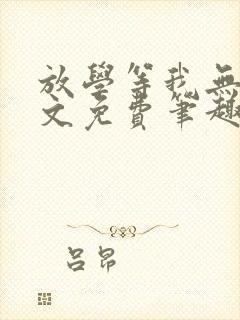 放學等我無
文免費筆趣
呂昂